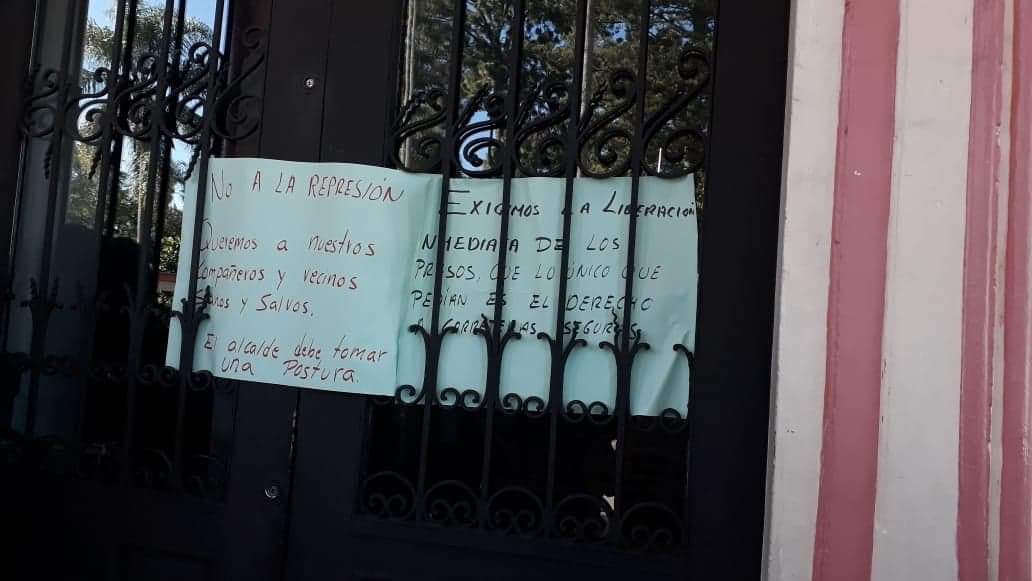 No A LA REPRESIÓN
Queremos a nuestros
Compañeros y vecinos
Sanos y Salvos.
El alcalde debe tomar
una Postura.
EXIGIMOS LA LIBERACION
INMEDIATA DE LOS
PRESOS, QUE LO ÚNICO QUE
PEDÍAN ES EL DERECHO
A CARRETERAS SEGURAS